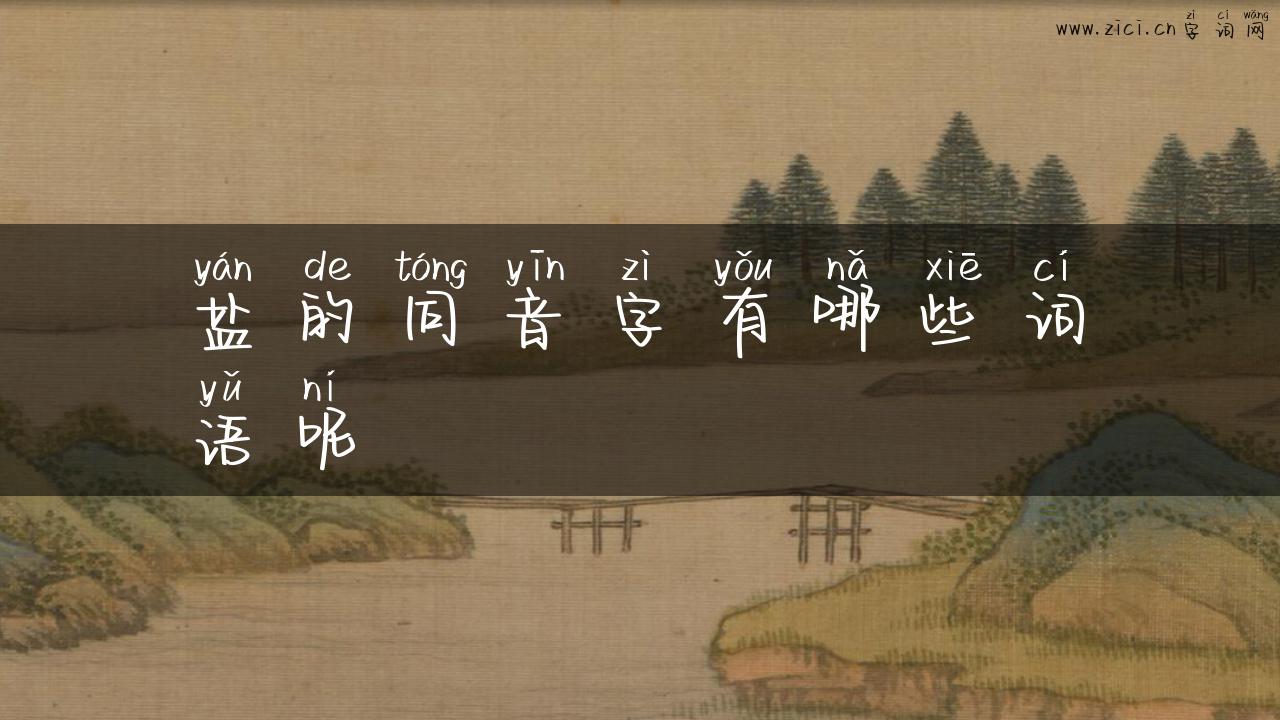 zì cí wǎng
www.zici.cn 字词网
yán de tóng yīn zì yǒu nǎ xiē cí
盐的同音字有哪些词
yǔ ní
语呢